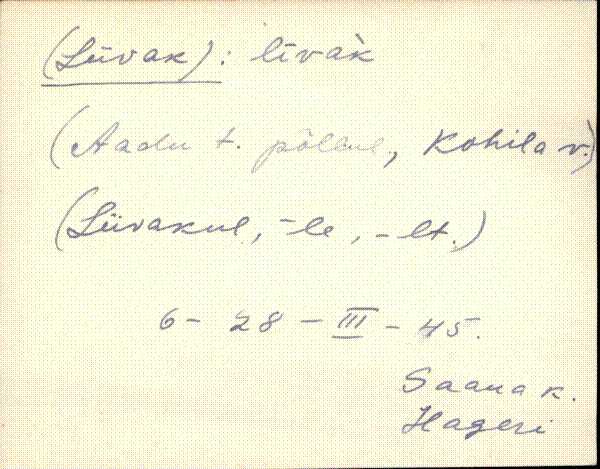 (Liivak): līvàk
(Aadu t. põllul, Kohila v.)
(Liivakul, -le, -lt.)
6 - 28 - III - 45.
Saana k.
Hageri